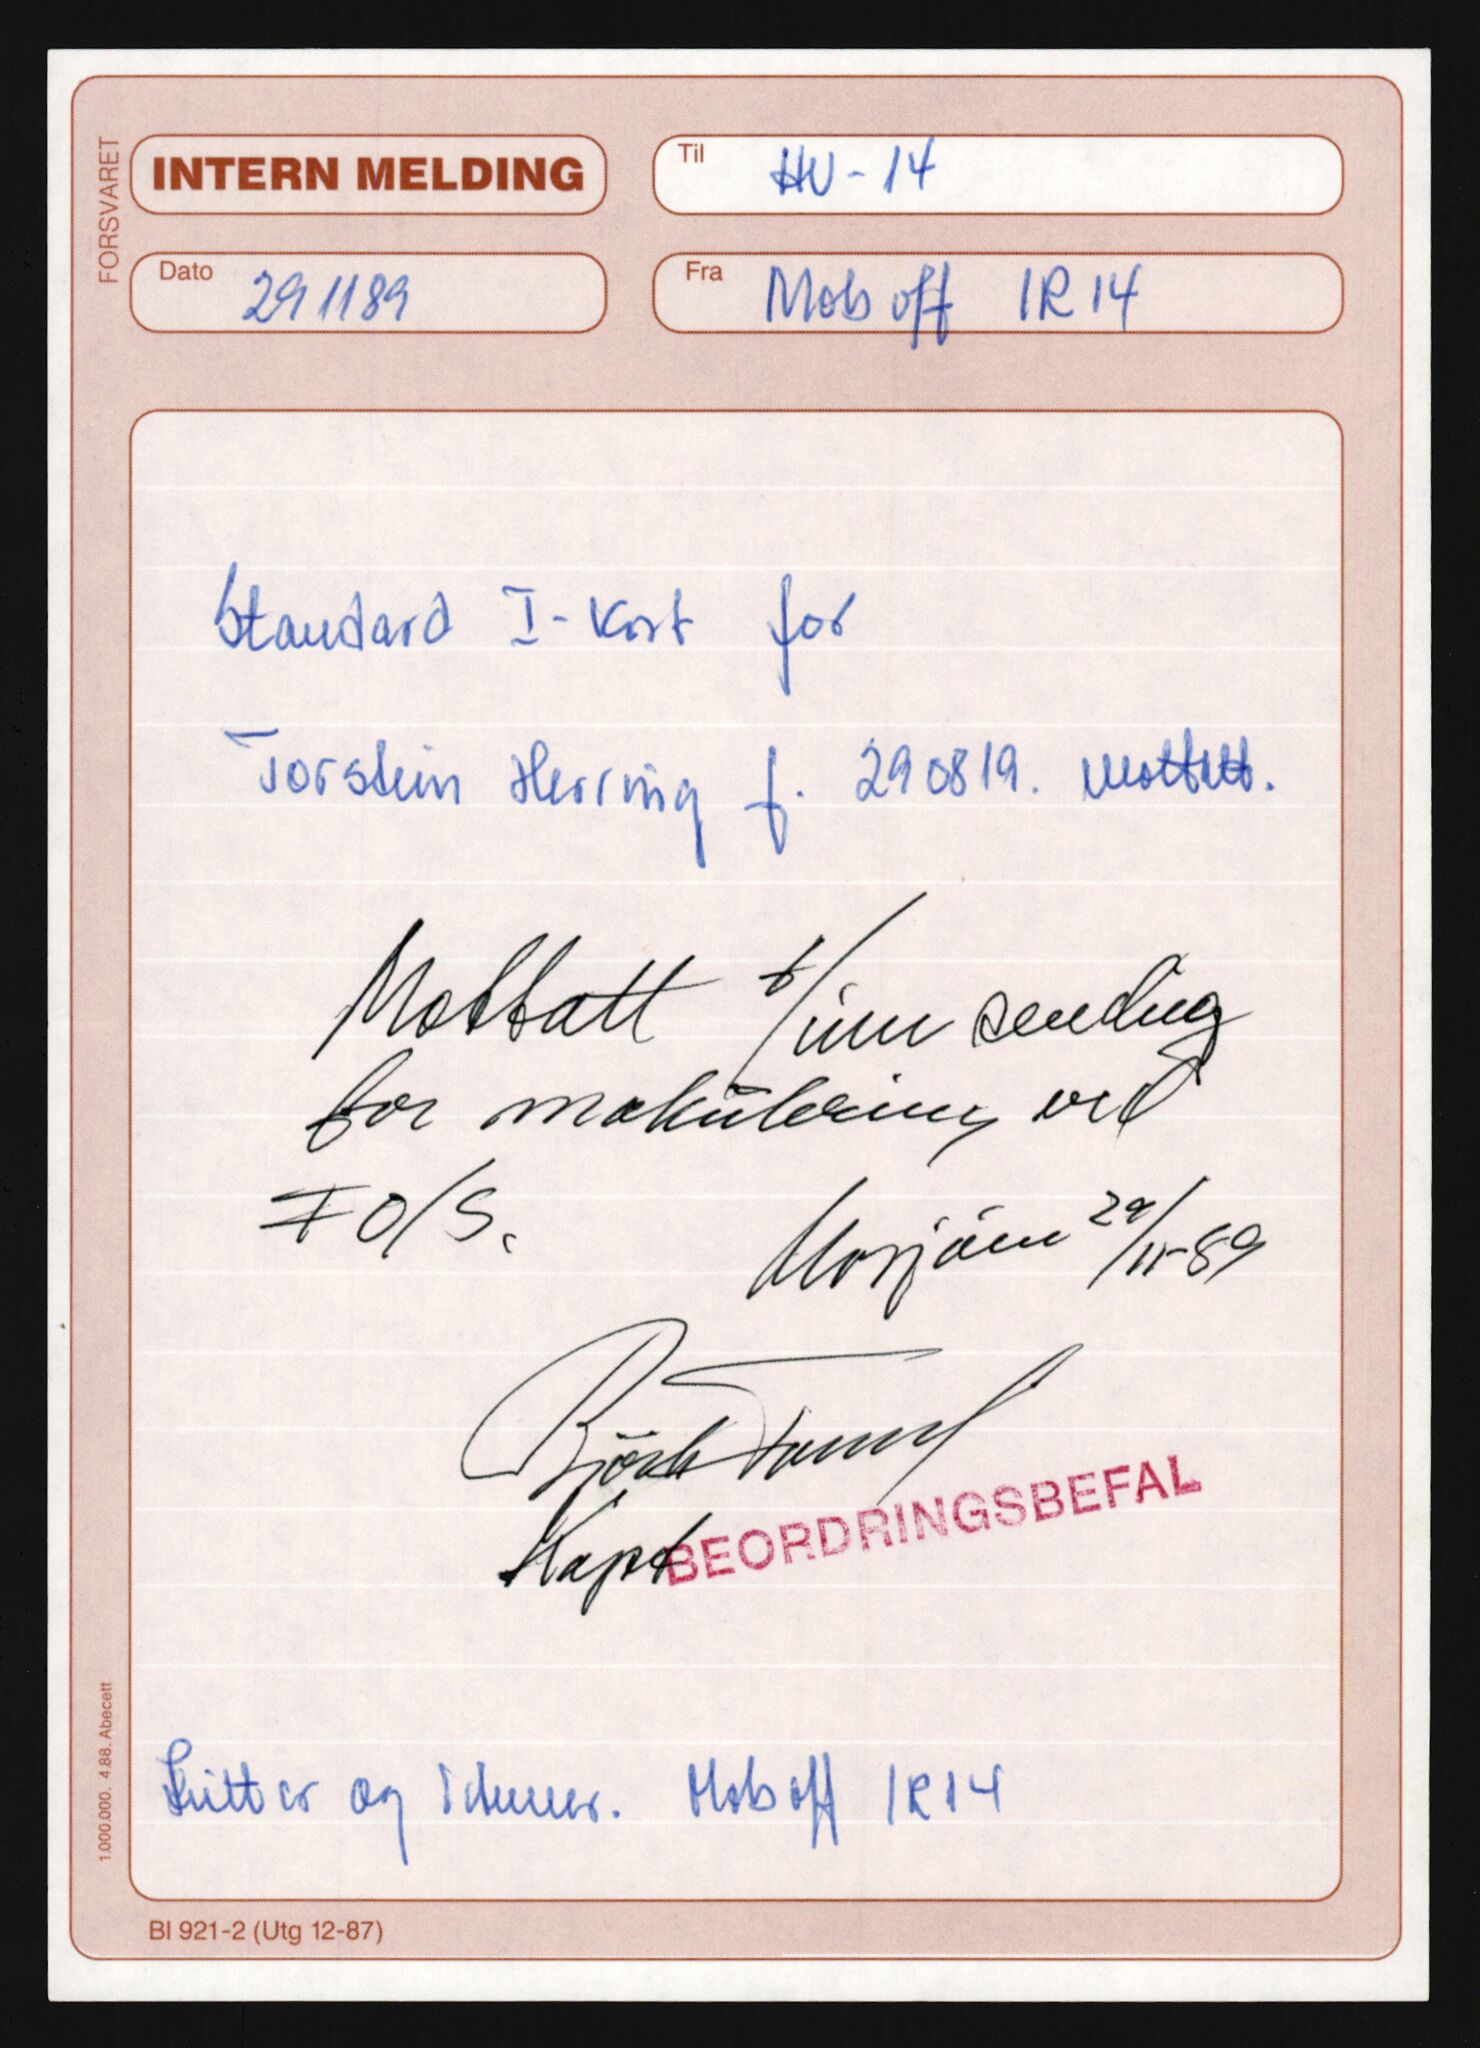 FORSVARET
INTERN MELDING
Til HV-14
Dato 291189
Fra Mob off IR 14
Standard I-Kort for
Torstein Herring f. 290819. Mottatt.
Mottatt f/inn sending
for makulering ved
FO/S.
Mosjöen 29/11-89
Björn
Kapt
BEORDRINGSBEFAL
og Mob off IR 14
1.000.000. 4.88. Abecett
BI 921-2 (Utg 12-87)